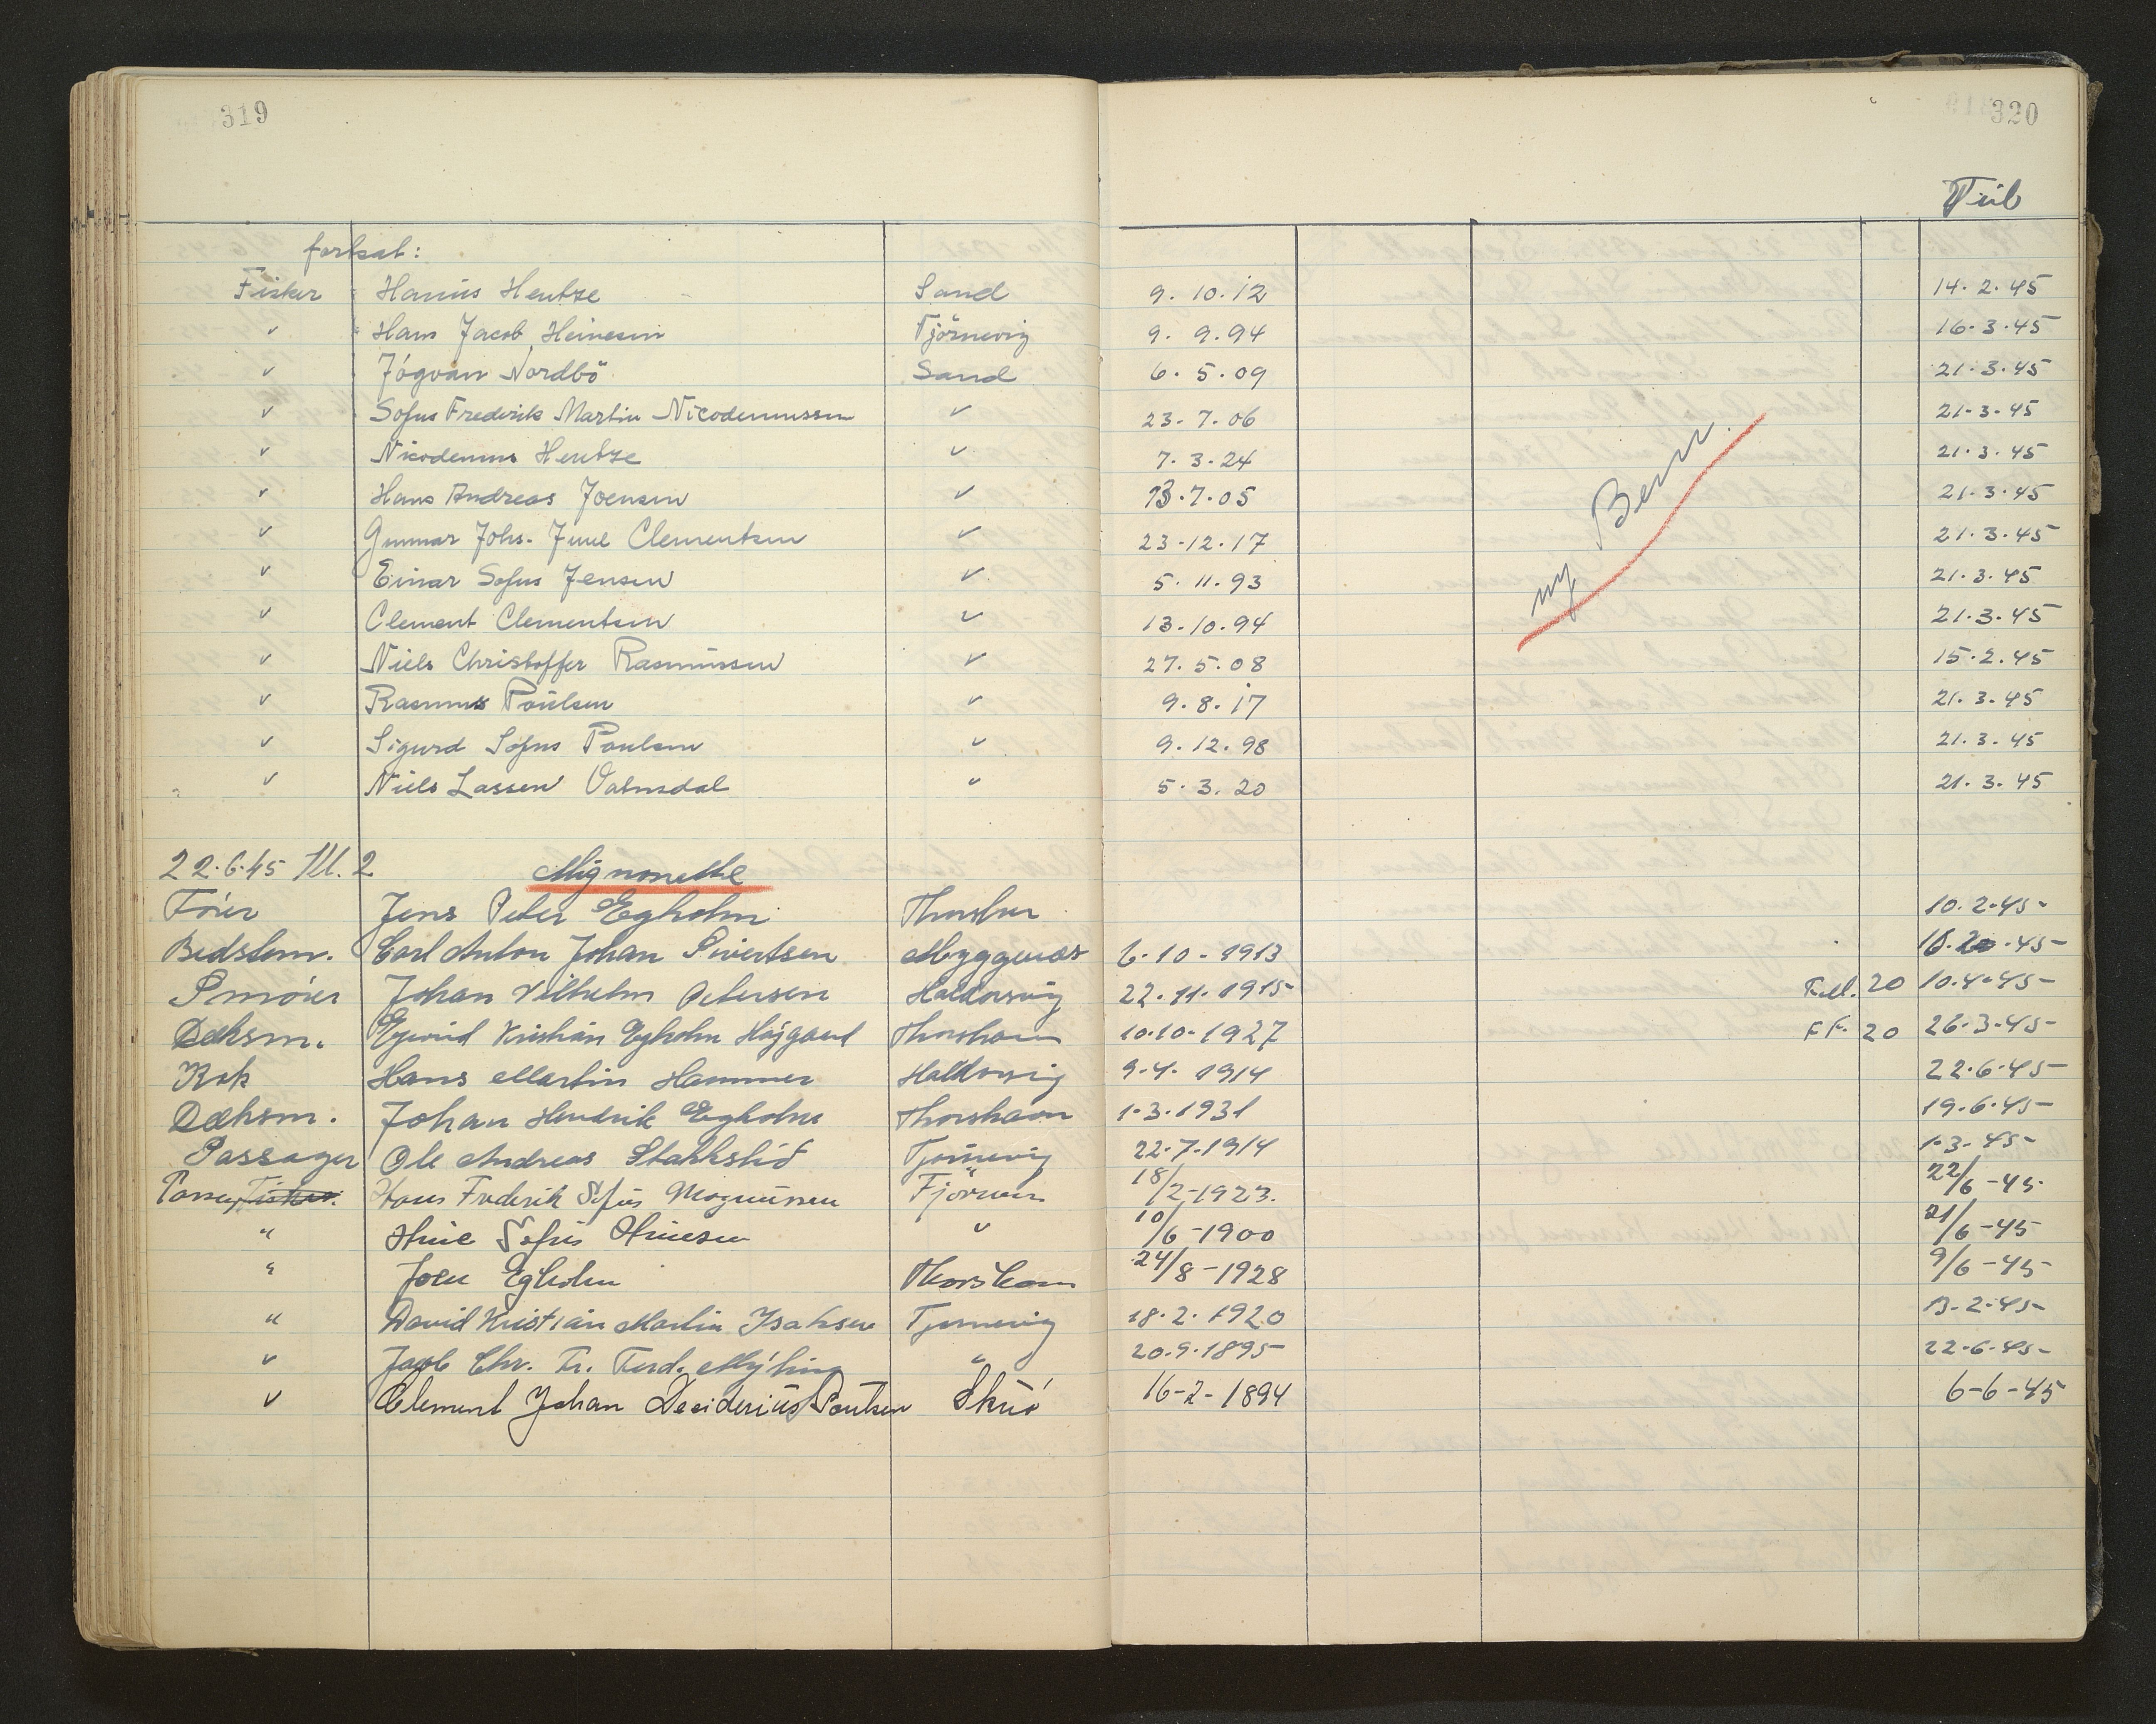 319
320
Tüb
fortsat:
Fisker Hanüs Hentze Sand 9. 10. 12 14. 2. 45
" Hans Jacob Heinesen Tjörnevig 9. 9. 94 16. 3. 45
" Jógvan Nordbö Sand 6. 5. 09 21. 3. 45
" Sofus Frederik Martin Nicodemussen " 23. 7. 06 21. 3. 45
" Nicodemus Hentze " 7. 3. 24 21. 3. 45
" Hans Andreas Joensen " 13. 7. 05 21. 3. 45
" Gunnar Johs. Juul Clementsen " 23. 12. 17 21. 3. 45
" Einar Sofus Jensen " 5. 11. 93 21. 3. 45
" Clement Clementsen " 13. 10. 94 21. 3. 45
" Niels Christoffer Rasmüssen " 27. 5. 08 15. 2. 45
" Rasmus Poülsen " 9. 8. 17 21. 3. 45
" Sigurd Sofus Poulsen " 9. 12. 98 21. 3. 45
" Niels Lassen Dalnsdal " 5. 3. 20 21. 3. 45
ny Bem.
22.6.45 Kl. 2 Mignonette
Fører Jens Peter Egholm Thorshavn 10. 2. 45
Bedstem. Carl Anton Johan Sivertsen Myggenæs 6. 10. 1913 45
Smører Johan Vilhelm Petersen Haldorsvig 22. 11. 1915 20 10. 4. 45
Dæksm. Ejvind Kristian Egholm Højgaard Thorshavn 10. 10. 1927 FF. 20 26. 3. 45
Kok Hans Martin Hammer Haldorsvig 9. 4. 1914 22. 6. 45
Dæksm. Johan Hendrik Egholm Thorshavn 1. 3. 1931 19. 6. 45
Passager Ole Andreas Stakkslid Tjörnevig 22. 7. 1914 1. 3. 45
Passag. Fisker Hans Frederik Sofüs Magnüssen Tjörnev 18/2-1923. 22/6-45
" Sofus " 10/6-1900 21/6-45
" Joen Egholm Thorshavn 24/8-1928 9/6-45
" David Kristian Martin Isaksen Tjørnevig 18. 2. 1920 13. 2. 45
" Jacob Chr. Fr. Ferd. Mýling " 20. 9. 1895 22. 6. 45
" Clement Johan Desideriüs Poulsen Skúö 16-2-1894 6-6-45